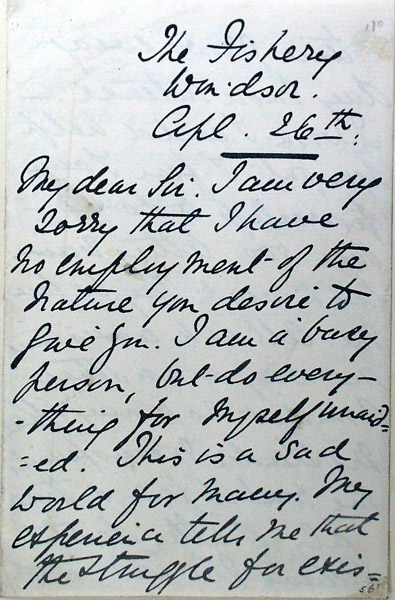 170
The Fishery
Windsor.
Apl. 26th.
My dear Sir. I am very
sorry that I have
no employment of the
nature you desire to
give you. I am a busy
person, but do every-
-thing for myself unaid=
=ed. This is a sad
world for many. My
experience tells me that
the struggle for exis=